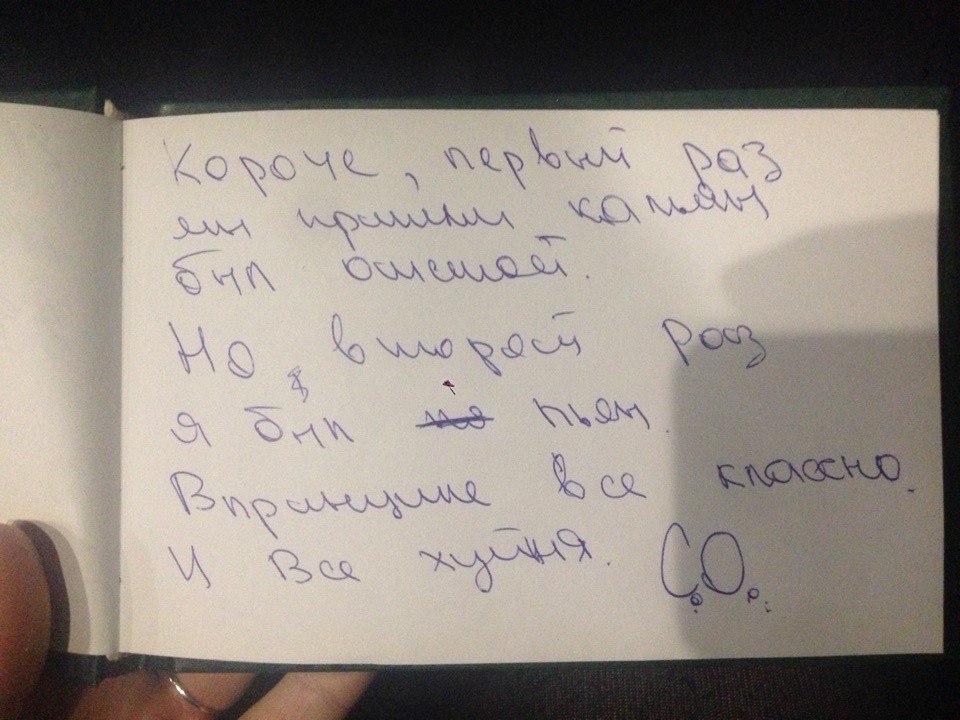 Короче, первый раз
мы пришли кальян
был отстой.
Но в второй раз
я был по пьян.
Впринципе все классно.
И все хуйня. СО.